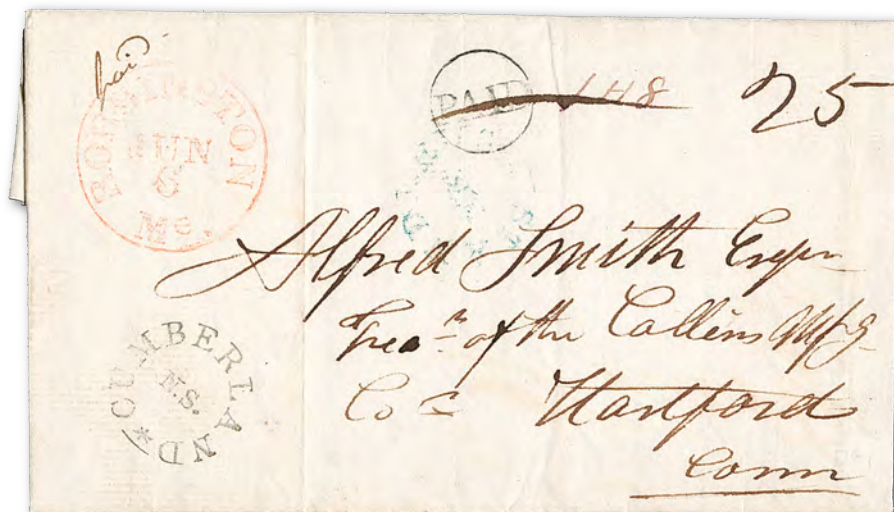 paid
ROBBINSTON
JUN
6
Me.
PAID
1 4 8
25
Alfred Smith Esqr
Treasr of the Collins Mfg
Co Hartford
Conn
CUMBERLAND
N.S.